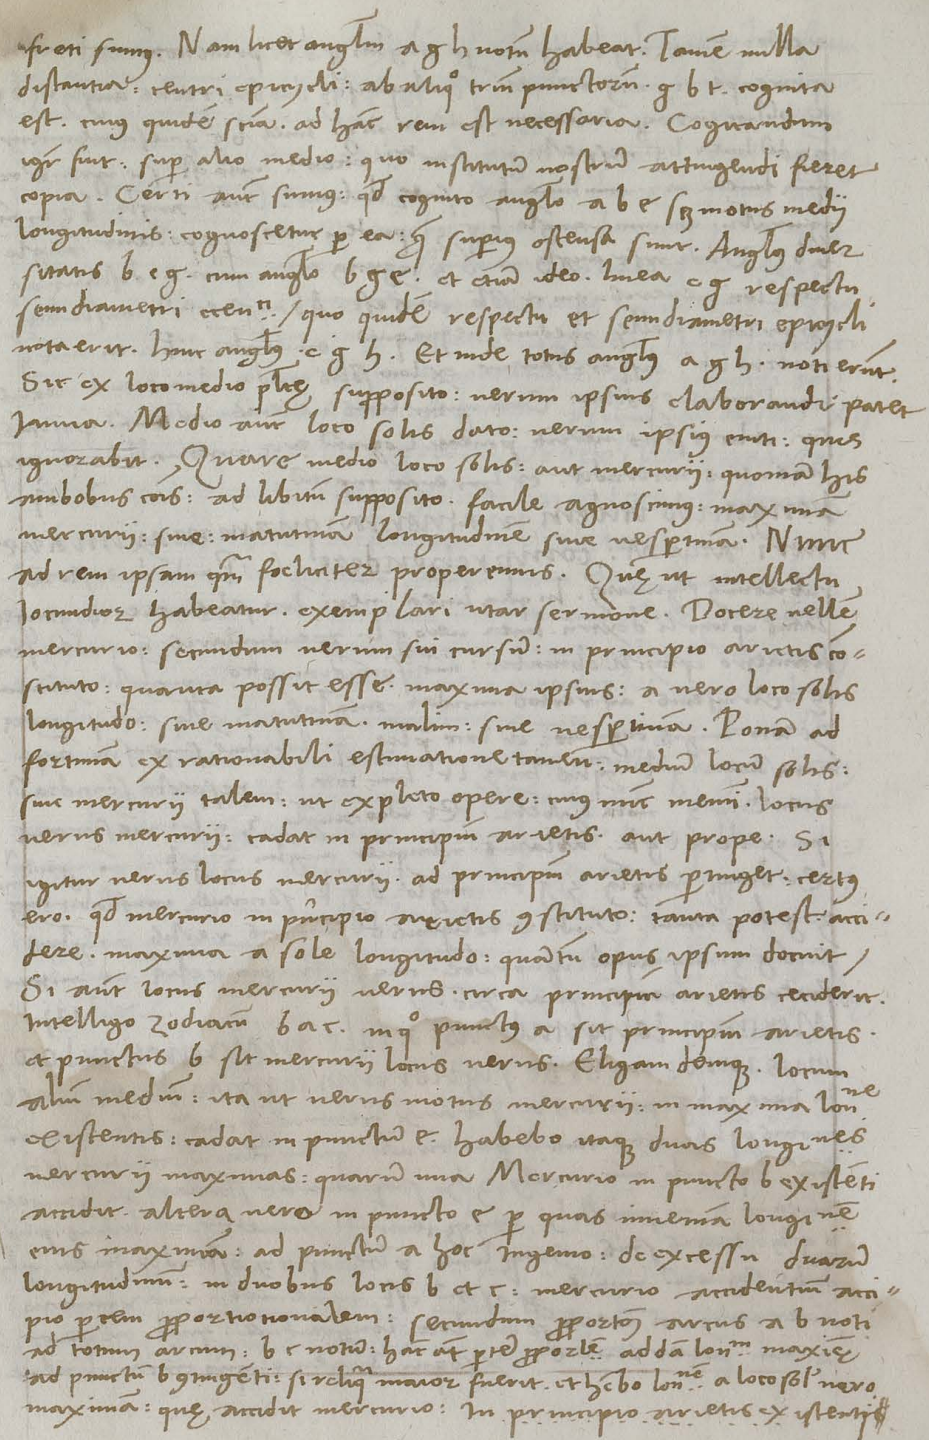 freti sumus. Nam licet anglm a g h notu habeat. Tame nulla
distantia: centri epicycli: ab aliqo triu punctoru g b t. cognita
est. cuius quide scia. ad hac rem est necessaria. Cogitandum
igr fuit. super alio medio: quo institutu nostru attingendi fieret
copia. Certi aut sumus: qd cognito anglo a b e motus medii
longitudinis: cognoscetur per ea: que superius ostensa sunt. Anglus diuer
sitatis b e g. cum anglo b g e. et etia ideo. linea e g respectu
semidiametri eccen / quo quide respectu et semidiametri epicycli
nota erit. hinc anglus e g h. Et inde totus anglus a g h. noti erut.
Sic ex loco medio supposito: uerum ipsius elaborandi patet
Ianua. Medio aut loco solis dato: uerum ipsius enti: quis
ignorabit. Quare medio loco solis: aut mercurii: quoniam his
ambobus cois: ad libitu supposito. facile agnoscimus: maxima
mercurii: siue: matutina longitudine siue uespertina. Nunc
ad rem ipsam foeliciter properemus. Que ut intellectu
Iocundior habeatur. exemplari utar sermone. Docere uelle
mercurio: secundum uerum sui cursu: in principio arietis co-
stituto: quanta possit esse. maxima ipsius: a uero loco solis
longitudo: siue matutina. malim: siue uespertina. Pona ad
fortuna ex rationabili estimatione tamen: mediu locu solis:
siue mercurii talem: ut expleto opere: cuius nuc memi. locus
uerus mercurii: cadat in principiu arietis. aut prope. Si
igitur uerus locus mercurii. ad principiu arietis pertinget: certus
ero. qd mercurio in principio arietis 9stituto: tanta potest acci-
dere. maxima a sole longitudo: quatu opus ipsum docuit /
Si aut locus mercurii uerus. circa principiu arietis ceciderit.
Intelligo zodiacu b a c. in qo punctus a sit principiu arietis.
et punctus b sit mercurii locus uerus. Eligam denique. locum
aliu mediu: ita ut uerus motus mercurii: in maxima lonne
existentis: cadat in punctu c. habebo itaque duas longines
mercurii maximas: quaru una Mercurio in puncto b existeti
accidit. altera uero in puncto c per quas inuenia longine
eius maxima: ad punctu a hoc ingenio: de excessu duaru
longitudinu: in duobus locis b et c: mercurio accidentiu acci-
pio partem proportionalem: secundum arcus a b noti
ad totum arcum: b c notum: hac at parte adda lonni maxime
ad punctu b 9tingenti: si reliqua maior fuerit. et hebo lonne a loco sol uero
maxima: que accidit mercurio: In principio arietis existentis